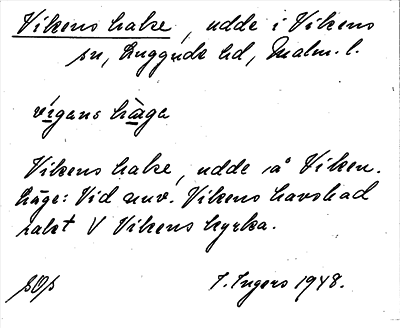 Vikens hake, udde i Vikens
sn, Luggude hd, Malm. l.
vigans haga
Vikens hake, udde i Viken.
Läge: Vid nuv. Vikens havsbad
rakt V Vikens kyrka.
I. Ingers 1948.